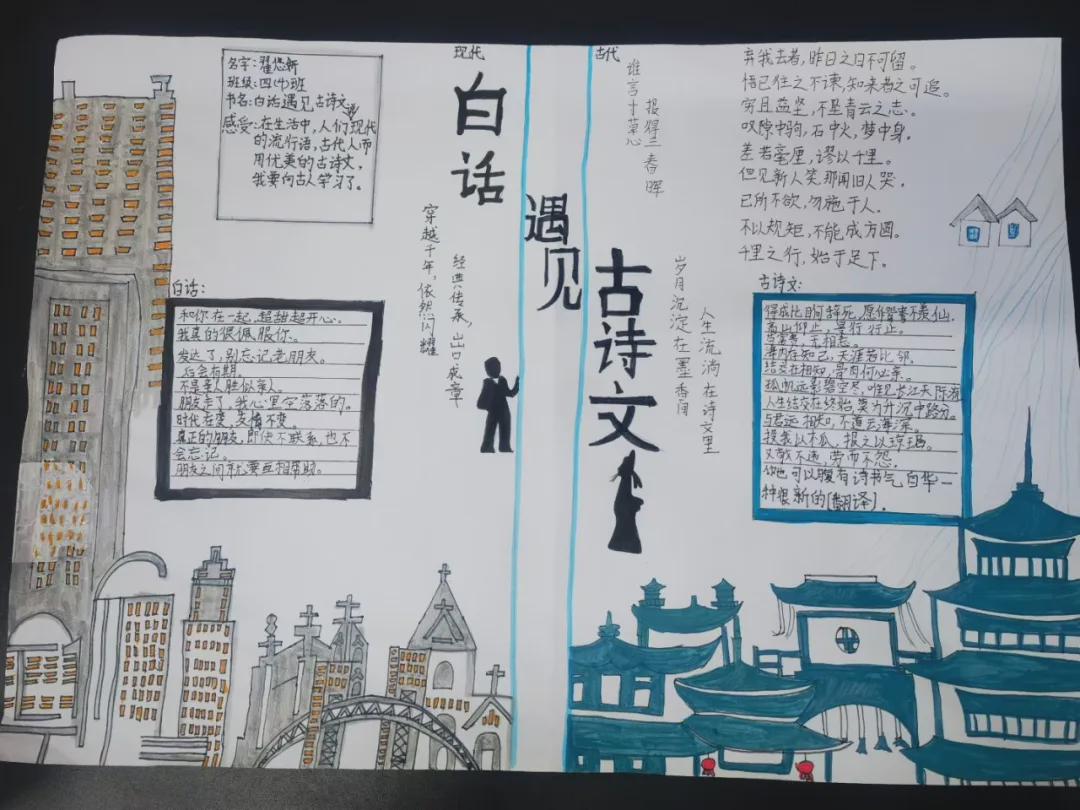 现代
古代
名字:翟悠新
班级:四(4)班
书名:白话遇见古诗文
感受:在生活中,人们现代
的流行语,古代人而
用优美的古诗文,
我要向古人学习了。
白话
遇见
古诗文
谁言寸草心
报得三春晖
穿越千年,依然闪耀
经典传承,出口成章
岁月沉淀在墨香间
人生流淌在诗文里
弃我去者,昨日之日不可留。
悟已往之不谏,知来者之可追。
穷且益坚,不坠青云之志。
叹隙中驹,石中火,梦中身。
差若毫厘,谬以千里。
但见新人笑,那闻旧人哭。
己所不欲,勿施于人.
不以规矩,不能成方圆。
千里之行,始于足下。
白话:
和你在一起,超甜超开心。
我真的很佩服你。
发达了,别忘记老朋友。
后会有期。
不是亲人胜似亲人。
朋友走了,我心里空落落的。
时代在变,友情不变。
真正的朋友,即使不联系,也不
会忘记。
朋友之间就要互相帮助。
古诗文:
得成比目何辞死,愿作鸳鸯不羡仙.
高山仰止,景行行止。
苟富贵,无相忘。
海内存知己,天涯若比邻。
结交在相知,骨肉何必亲。
孤帆远影碧空尽,唯见长江天际流
人生结交在终始,莫为升沉中路分。
与君远相知,不道云海深。
投我以木瓜,报之以琼琚。
又敬不违,劳而不怨.
你也可以腹有诗书气自华一
种很新的[翻译].